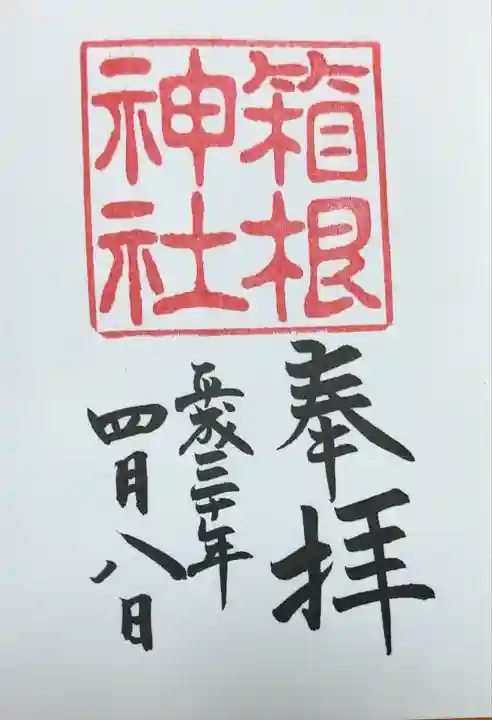 箱根
神社
奉拝
平成三十年
四月八日